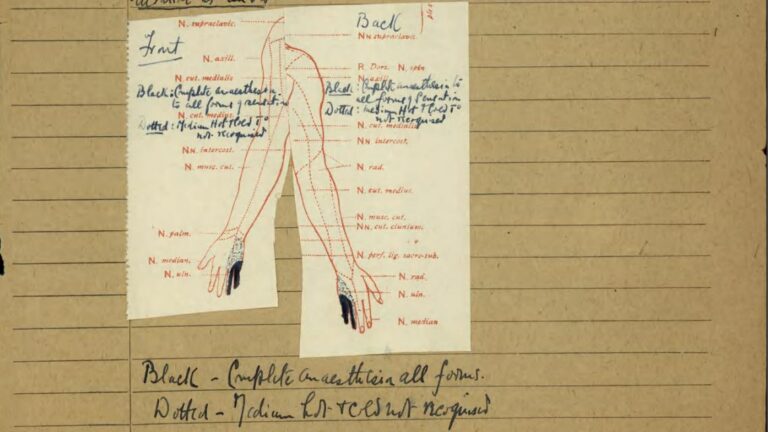 Front
N. supraclavic.
N. axill.
N. cut. medialis
Black: Complete anaesthesia
to all forms of sensation
N. cut. medius.
Dotted: Medium Hot & Cold T°
not recognised
Nn. intercost.
N. musc. cut.
N. palm.
N. median.
N. uln.
Back
Nn supraclavic.
R. Dors. N. spin
N. axill.
Black: Complete anaesthesia to
all forms of Sensation
Dotted: Medium Hot & Cold T°
not recognised
N. cut. medialis
Nn. intercost.
N. rad.
N. cut. medius.
N. musc. cut.
Nn. cut. clunium.
N. perf. lig. sacro-tub.
N. rad.
N. uln.
N. median
Black – Complete anaesthesia all forms.
Dotted – Medium hot & cold not recognised